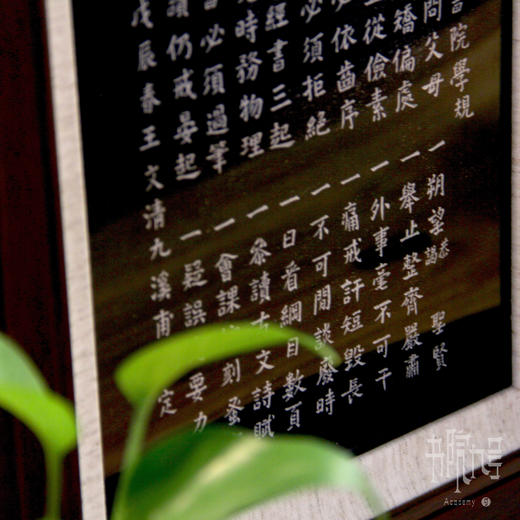 書院學規
問父母 一 朔望恭謁聖賢
矯偏處 一 舉止整齊嚴肅
從儉素 一 外事毫不可干
必依齒序 一 痛戒訐短毀長
必須拒絕 一 不可閒談廢時
經書三起 一 日看綱目數頁
時務物理 一 叅讀古文詩賦
必須過筆 一 會課 刻蚤
仍戒晏起 一 疑誤 要力
戊辰春王文清九溪甫 定
Academy